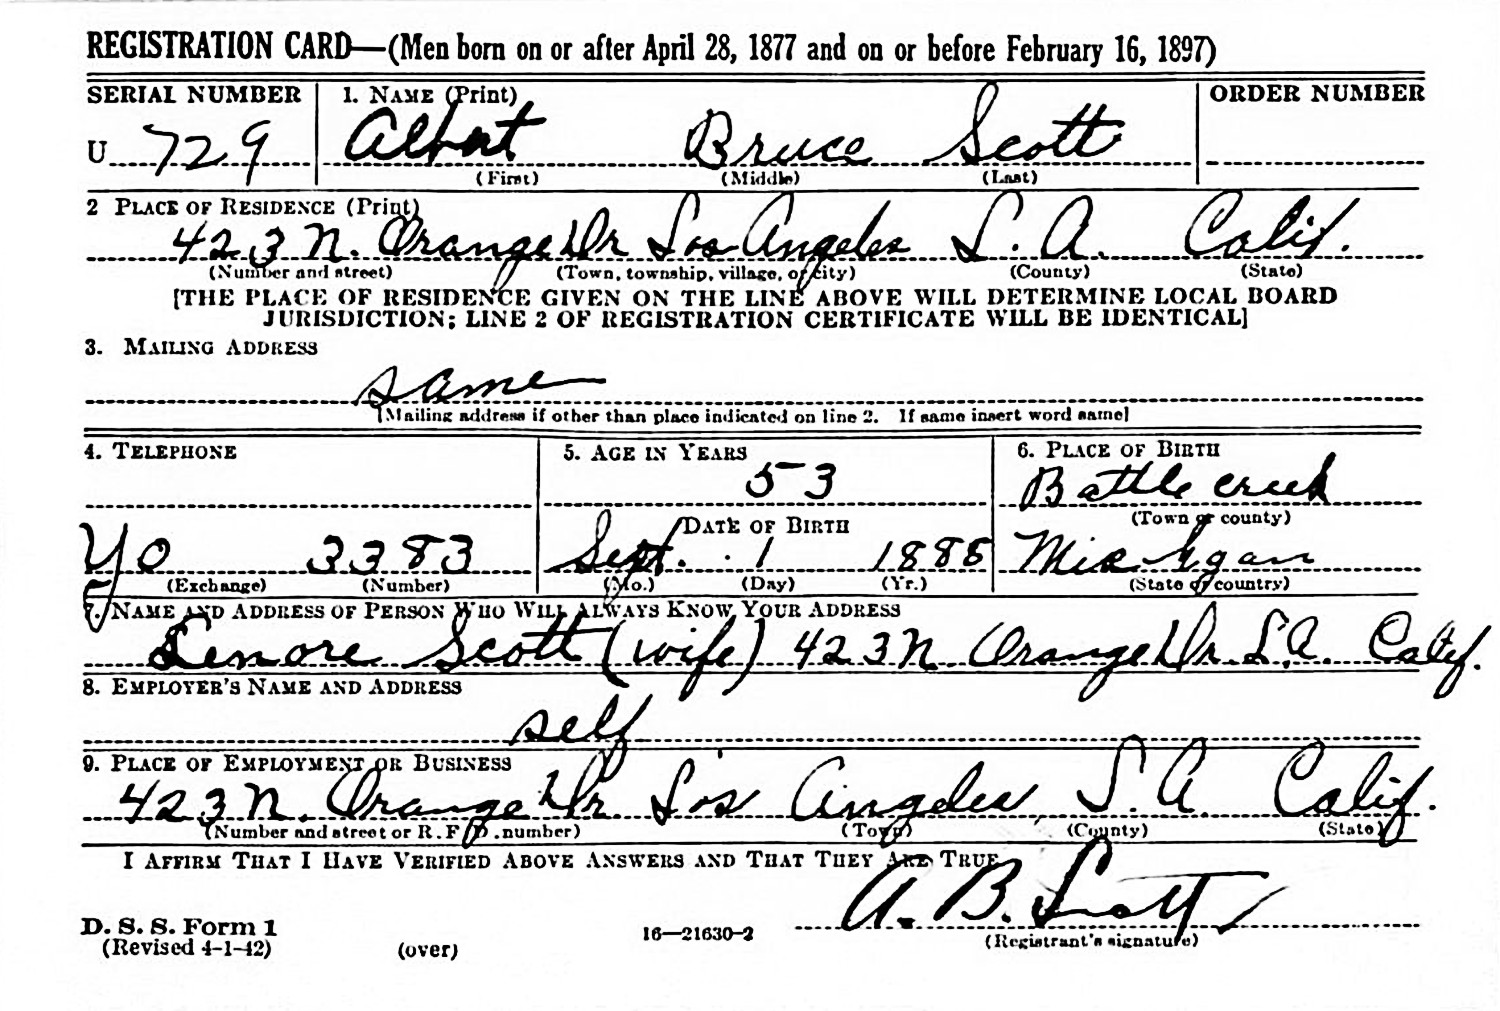 REGISTRATION CARD—(Men born on or after April 28, 1877 and on or before February 16, 1897)
SERIAL NUMBER
1. NAME (Print)
ORDER NUMBER
U 729
Albert Bruce Scott
(First) (Middle) (Last)
2 PLACE OF RESIDENCE (Print)
423 N. Orange Dr Los Angeles L. A. Calif.
(Number and street) (Town, township, village, or city) (County) (State)
[THE PLACE OF RESIDENCE GIVEN ON THE LINE ABOVE WILL DETERMINE LOCAL BOARD
JURISDICTION; LINE 2 OF REGISTRATION CERTIFICATE WILL BE IDENTICAL]
3. MAILING ADDRESS
same
[Mailing address if other than place indicated on line 2. If same insert word same]
4. TELEPHONE
5. AGE IN YEARS
6. PLACE OF BIRTH
53
Battle creek
DATE OF BIRTH
(Town or county)
Yo 3383
Sept. 1
Michgan
(Exchange) (Number)
(Mo.) (Day) (Yr.)
(State or country)
7. NAME AND ADDRESS OF PERSON WHO WILL ALWAYS KNOW YOUR ADDRESS
Lenore Scott (wife) 423 N. Orange Dr. L.A. Calif.
8. EMPLOYER'S NAME AND ADDRESS
self
9. PLACE OF EMPLOYMENT OR BUSINESS
423 N. Orange Dr. Los Angeles L.A Calif.
(Number and street or R. F. D. number) (Town) (County) (State)
I AFFIRM THAT I HAVE VERIFIED ABOVE ANSWERS AND THAT THEY ARE TRUE
A. B. Scott
D. S. S. Form 1
(Revised 4-1-42) (over) 16—21630-2
(Registrant's signature)